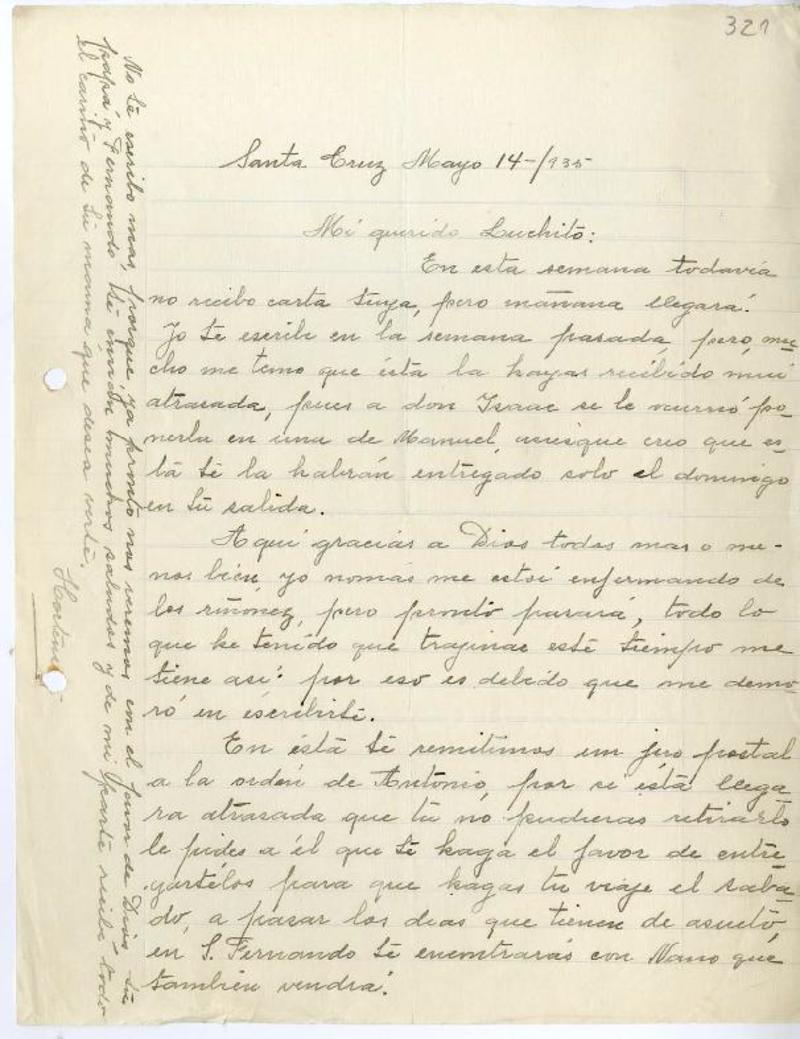 321
Santa Cruz Mayo 14-/935
Mi querido Luchito:
En esta semana todavia
no recibo carta tuya, pero mañana llegará.
Yo te escribi en la semana pasada, pero, mu-
cho me temo que ésta la hayas recibido mui
atrasada, pues a don Isaac se le ocurrió po-
nerla en una de Manuel, asiesque creo que es-
ta te la habrán entregado solo el domingo
en tu salida.
Aqui gracias a Dios todos mas o me-
nos bien, yo nomas me estoi enfermando de
los riñonez, pero pronto pasará, todo lo
que he tenido que trajinar este tiempo me
tiene asi: por eso es debido que me demo-
ró en escribirte.
En ésta te remitimos un jiro postal
a la orden de Antonio, por si ésta llega-
ra atrasada que tu no pudieras retirarlo
le pides a él que te haga el favor de entre-
gartelos para que hagas tu viaje el saba-
do, a pasar los dias que tienen de asueto,
en S. Fernando te encontrarás con Nano que
tambien vendrá.
No te escribo mas, porque ya pronto nos veremos em el favor de Dios. tu
papá y Fernando te envian muchos saludos y de mi parte recibe todo
el cariño de tu mamá que desea verte.
Hortensia